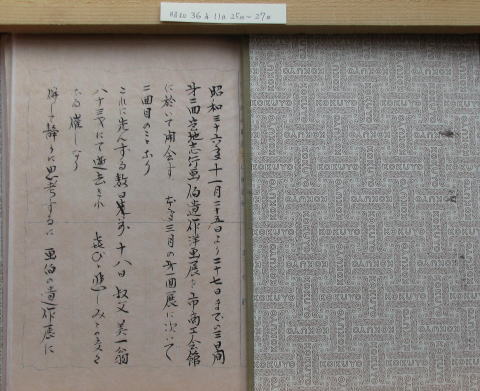 昭和36年11月25日~27日
昭和三十六年十一月二十五日より二十七日までの三日間
第二回岩地志行画伯遺作洋画展を市商工会館
に於いて開会す 本年三月の第一回展に次いで
二回目のことなり
これに先んずる数日 十八日叔父英一翁
八十三才にて逝去され 喜び悲しみこもごも
なる催しなり
静かに思考するに 画伯の遺作展に
KOKUYO